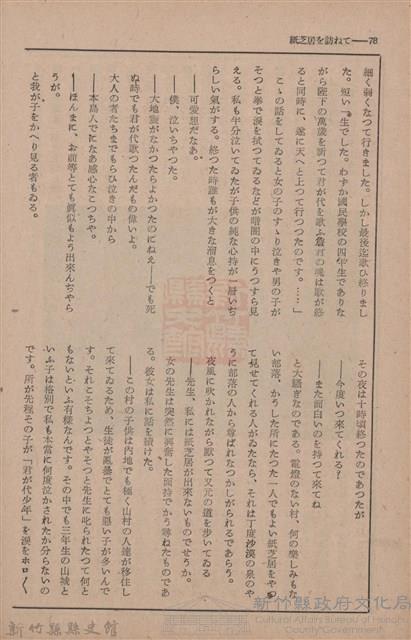 紙芝居を訪ねて——78
細く弱くなつて行きました。しかし最後迄歌ひ終りまし
た。短い一生でした。わずか國民學校の四年生でありな
がら陛下の萬歲を祈つて君が代を歌ふ詹君の魂は歌が終
ると同時に、遂に天へと上つて行つつたのです。……」
こゝの話をしてゐると女の子のすゝり泣きや男の子が
そつと拳で淚を拭つてゐるなどが暗闇の中にうつすら見
える。私も半分泣いてゐたが子供の純な心持が一層いぢ
らしい氣がする。終つた時誰もが大きな溜息をつくと
——可愛想だなあ。
——僕、泣いちやつた。
——大地震がなかつたらよかつたのにねえ——でも死
ぬ時でも君が代歌つたんだもの偉いよ。
大人の者たちまでもらひ泣きの中から
——本島人でになあ感心なこつちや。
——ほんまに、お前等とても眞似もよう出來んぢやら
うが。
と我が子をかへり見る者もゐる。
その夜は十時頃終つたのであつたが
——今度いつ來てくれる?
——また面白いのを持つて來てね
と大騷ぎなのである。電燈のない村、何の樂しみもな
い部落、かうした所にたつた一人でもよい紙芝居をやつ
て見せてくれる人がゐたなら、それは丁度沙漠の泉のや
うに部落の人から尊ばれなつかしがられるであらう。
夜風に吹かれながら默つて又元の道を步いてゐる
——先生、私には紙芝居が出來ないものでせうか。
女の先生は突然に興奮した面持でかう尋ねたものであ
る。彼女は私に話を續けた。
——この村の子供は內地でも極く山村の人達が移住し
て來てゐるため、生徒が亂暴でとても惡い子が多いんで
す。それこそちよつとやそつと先生に叱られたつて何と
もないといふ有樣なんです。その中でも三年生の山城と
いふ子は格別で私も本當に何度泣かされたか分らないの
です。所が先程その子が「君が代少年」を淚をホロ〱
新竹縣縣史館
新竹縣政府文化局
Cultural Affairs Bureau of Hsinchu
County Government